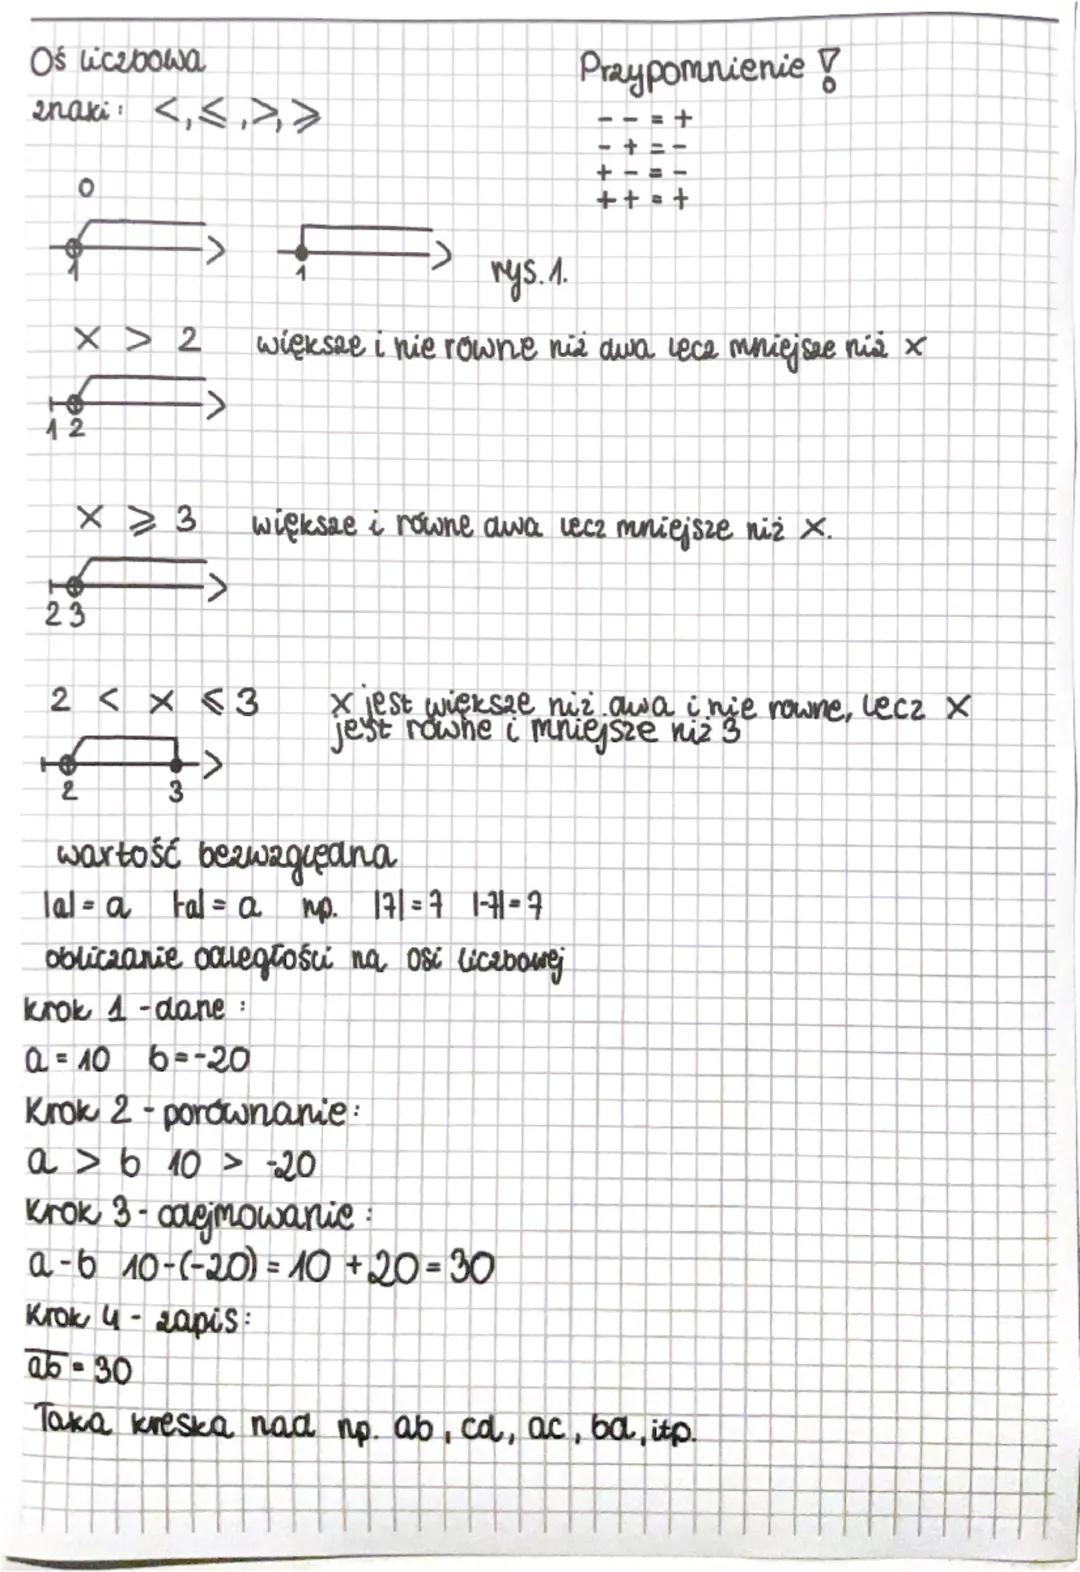 Oś liczbowa
Przypomnienie!
znaki: <, ⩽, >, ⩾
- - = +
- + = -
+ - = -
+ + = +
0
1
1
rys. 1.
x > 2 większe i nie równe niż dwa lecz mniejsze niż x
1 2
x ⩾ 3 większe i równe dwa lecz mniejsze niż x.
2 3
2 < x ⩽ 3 x jest większe niż dwa i nie rowne, lecz x
jest równe i mniejsze niż 3
2 3
wartość bezwzględna
|a| = a |-a| = a np. |7| = 7 |-7| = 7
obliczanie odległości na osi liczbowej
krok 1 - dane :
a = 10 b = -20
Krok 2 - porównanie:
a > b 10 > -20
Krok 3 - odejmowanie :
a - b 10-(-20) = 10 + 20 = 30
Krok 4 - zapis:
a̅b̅ = 30
Taka kreska nad np. ab, cd, ac, bd, itp.